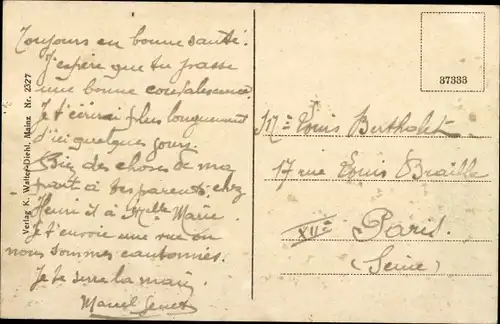 Toujours en bonne santé.
J'espère que tu passe
une bonne convalescence.
Je t'écrirai plus longuement
d'ici quelques jours.
Bien des choses de ma
part à tes parents, chez
Henri et à Melle Marie.
Je t'envoie une vue où
nous sommes cantonnés.
Je te serre la main
Marcel
Verlag K. Diehl, Mainz Nr. 2327
37333
Mr Louis Bertholet
17 rue Louis Braille
XIIe Paris.
(Seine)